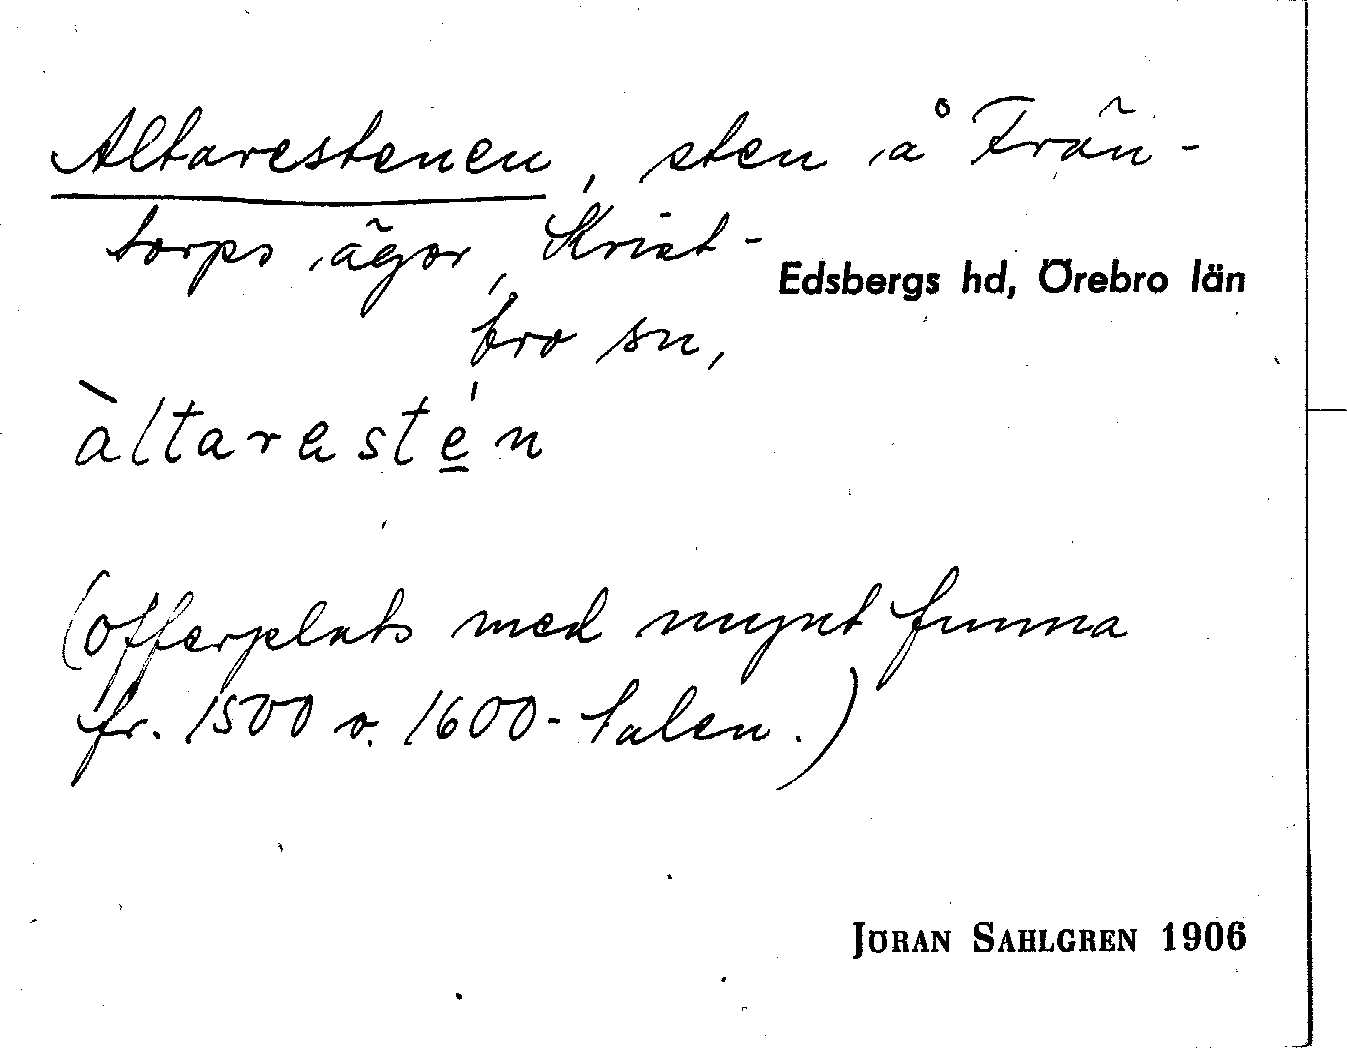 Altarestenen, sten å Frän-
torps ägor, Krist-
Edsbergs hd, Örebro län
bro sn,
àltarestén
(offerplats med mynt funna
fr. 1500 o. 1600-talen.)
JÖRAN SAHLGREN 1906